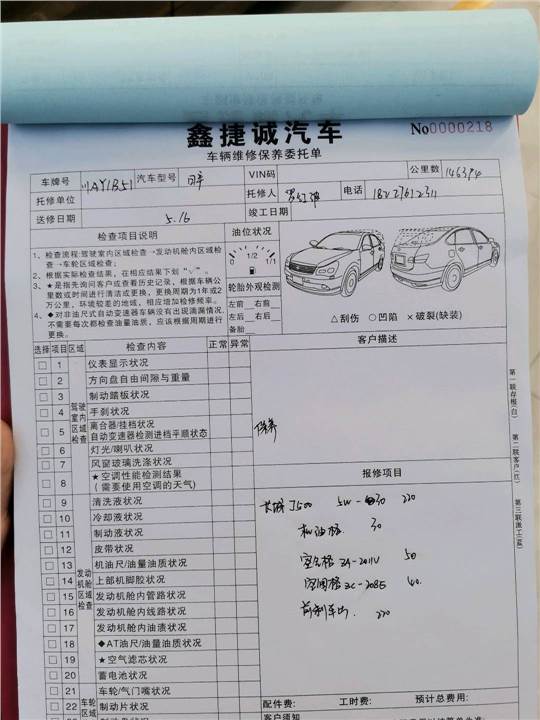 鑫捷诚汽车
No0000218
车辆维修保养委托单
车牌号 川AY1B51 汽车型号 VIN码 公里数 146394
托修单位 托修人 电话
送修日期 5.16 竣工日期
检查项目说明 油位状况
1、检查流程:驾驶室内区域检查→发动机舱内区域检查→车轮区域检查;
2、根据实际检查结果，在相应结果下划“√”。
3、★是指先询问客户或查看历史记录，根据车辆公里数或时间进行清洁或更换，更换周期为1年或2万公里，环境较差的地域，相应增加检修频率。
4、◆对非油尺式自动变速器车辆没有出现滴漏情况，不需要每次都检查油量油质，应该根据周期进行更换。
0 1/2 1/1
轮胎外观检测
左前 右前
左后 右后
备胎
△刮伤 ○凹陷 ×破裂(缺装)
选择 项目 区域 检查内容 正常 异常 客户描述
驾驶室内区域检查
1 仪表显示状况
2 方向盘自由间隙与重量
3 制动踏板状况
4 手刹状况
5 离合器/挂档状况
自动变速器检测进档平顺状态
6 灯光/喇叭状况
7 风窗玻璃洗涤状况
8 ★空调性能检测结果
(需要使用空调的天气)
保养
报修项目
发动机舱区域检查
9 清洗液状况
10 冷却液状况
11 制动液状况
12 皮带状况
13 机油尺/油量油质状况
14 上部机脚胶状况
15 发动机舱内管路状况
16 发动机舱内线路状况
17 发动机舱内油渍状况
18 ◆AT油尺/油量油质状况
19 ★空气滤芯状况
20 蓄电池状况
车轮区
21 车轮/气门嘴状况
22 制动片状况
长城 J500 5W-30 220
机油格 30
空气格 ZA-2011V 50
空调格 ZC-2085 40
前刹车片 220
配件费: 工时费: 预计总费用:
客户须知
第一联存根(白)
第二联客户(红)
第三联派工(蓝)